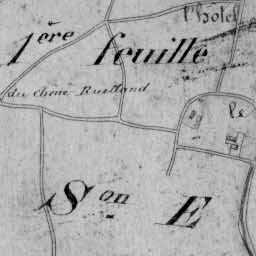 l'hôtel
1ère feuille
du chêne Ruelland
le
Son E